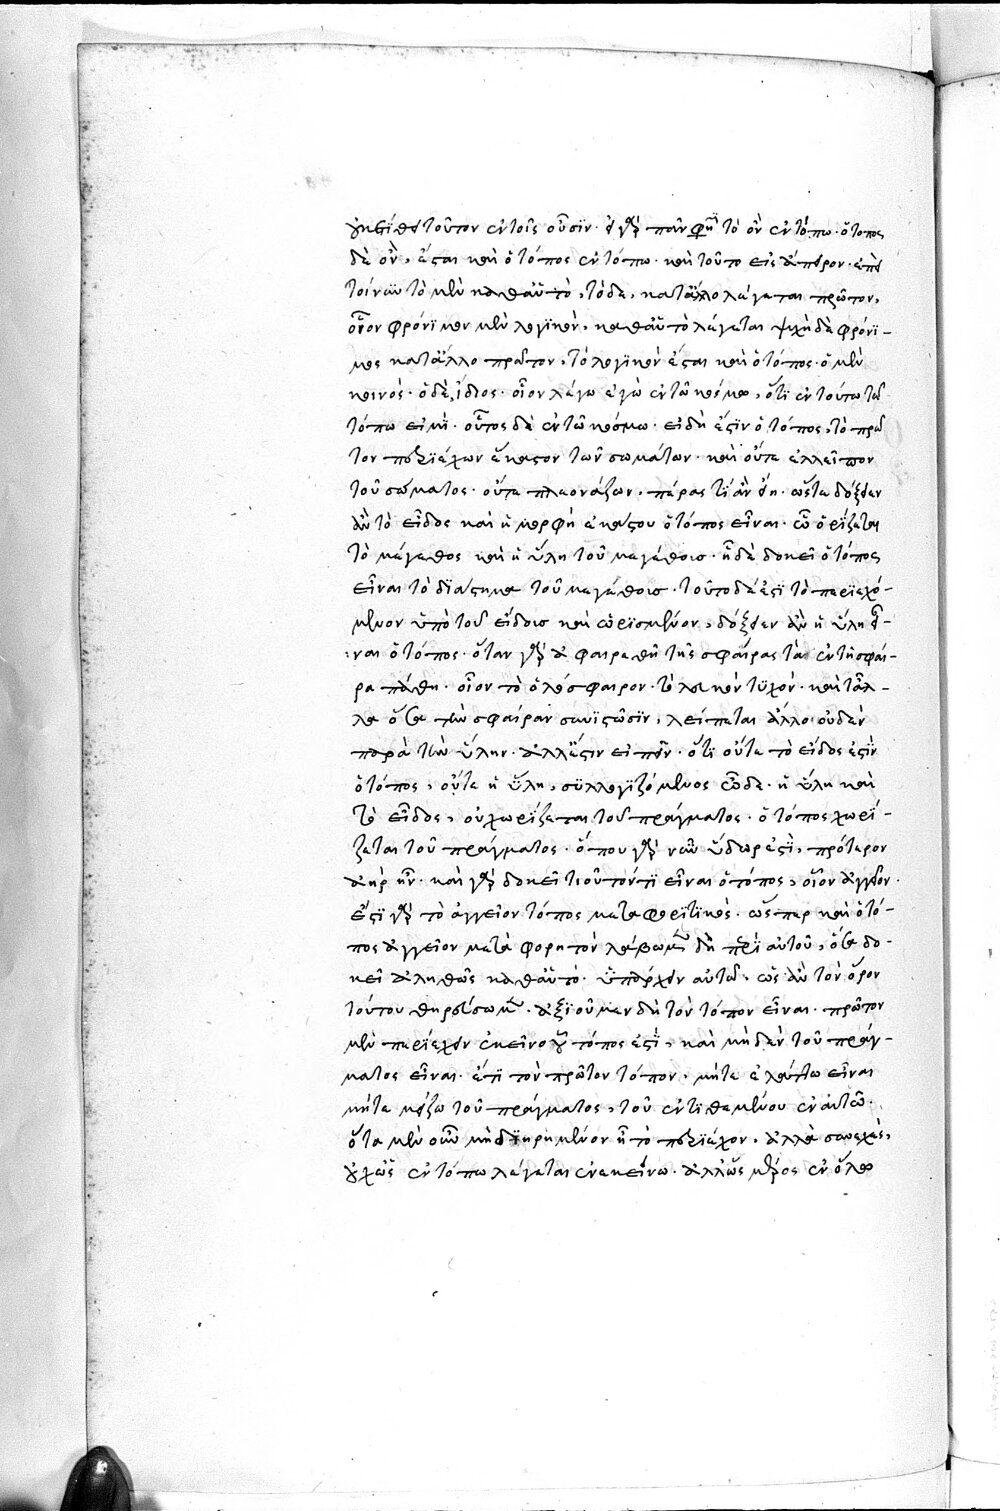 τοῦτον ἐν τοῖς οὖσϊν. εἰ γὰρ πᾶν φησὶ τὸ ὂν ἐν τόπω. ὁ τόπος
δὲ ὂν, ἔσται καὶ ὁ τόπος ἐν τόπω. καὶ τοῦτο εἰς ἄπειρον. ἐπεὶ
τοίνυν τὸ μὲν καθαὑτὸ, τὸ δε, κατάλλο λέγεται πρῶτον,
οἷον φρόνϊμον μὲν λογϊκὸν, καθαὑτὸ λέγεται ψυχὴ δὲ φρόνϊ-
μος κατάλλο πρῶτον, τὸ λογϊκὸν ἔσται καὶ ὁ τόπος. ὁ μὲν
κοινὸς. ὁ δὲ ἴδϊος. οἷον λέγω ἐγὼ ἐν τῶ κόσμω, ὅτι ἐν τούτω τῶ
τόπω εἰμὶ. οὗτος δὲ ἐν τῶ κόσμω. εἰ δὴ ἐστὶν ὁ τόπος, τὸ πρῶ
τον περϊέχων ἕκαστον τῶν σωμάτων. καὶ οὔτε ἐλλεῖπον
τοῦ σώματος. οὔτε πλεονάζων. πέρας τϊ ἂν εἴη. ὥστε δόξειεν
ἂν τὸ εἶδος καὶ ἡ μορφὴ ἑκάστου ὁ τόπος εἶναι. ὧ ὁρίζεται
τὸ μέγεθος καὶ ἡ ὕλη τοῦ μεγέθους. ἧ δὲ δοκεῖ ὁ τόπος
εἶναι τὸ δϊάστημα τοῦ μεγέθους. τοῦτο δέ ἐστϊ τὸ περϊεχό-
μενον ὑπὸ τοῦ εἴδους καὶ ὡρϊσμένον, δόξειεν ἂν ἡ ὕλη εἶ-
ναι ὁ τόπος. ὅταν γὰρ ἀφαιρεθῆ τῆς σφαίρας τὰ ἐν τῆ σφαί-
ρα πάθη. οἷον τὸ ὁλόσφαιρον. τὸ λευκὸν τϋχὸν. καὶ τἆλ-
λα ὅσα τὴν σφαίραν συνϊστῶσϊν, λείπεται ἄλλο οὐδὲν
παρὰ τὴν ὕλην. ἀλλέστιν εἰπεῖν. ὅτι οὔτε τὸ εἶδος ἐστϊν
ὁ τόπος, οὔτε ἡ ὕλη, σϋλλογϊζόμενος ὧδε. ἡ ὕλη καὶ
τὸ εἶδος, οὐ χωρίζεται τοῦ πράγματος. ὁ τόπος χωρί-
ζεται τοῦ πράγματος. ὅπου γὰρ νῦν ὕδωρ ἐστϊ, πρότερον
ἀὴρ ἦν. καὶ γὰρ δοκεῖ τιοῦτόντϊ εἶναι ὁ τόπος, οἷον ἀγγεῖον.
ἔστϊ γὰρ τὸ ἀγγεῖον τόπος μεταφορϊτικὸς. ὥσπερ καὶ ὁ τό-
πος ἀγγεῖον μετὰ φορητὸν λάβωμεν δὴ περϊ αὐτοῦ, ὅσα δο-
κεῖ ἀληθῶς καθαὑτὸ. ὑπάρχειν αὐτῶ. ὡς ἂν τὸν ὅρον
τούτου θηρεύσωμεν. ἀξϊοῦμεν δὴ τὸν τόπον εἶναι. πρῶτον
μὲν περϊέχειν ἐκεῖνο οὗ τόπος ἐστϊ, καὶ μηδὲν τοῦ πράγ-
ματος εἶναι. ἔτϊ τὸν πρῶτον τόπον, μήτε ἐλάττω εἶναι
μήτε μείζω τοῦ πράγματος, τοῦ ἐντϊθεμένου ἐν αὐτῶ.
ὅτε μὲν οὖν μὴ δϊηρημένον ἦ τὸ περϊέχον, ἀλλὰ συνεχὲς,
οὐχὡς ἐν τόπω λέγεται ἐν ἐκείνω. ἀλλὡς μέρος ἐν ὅλω